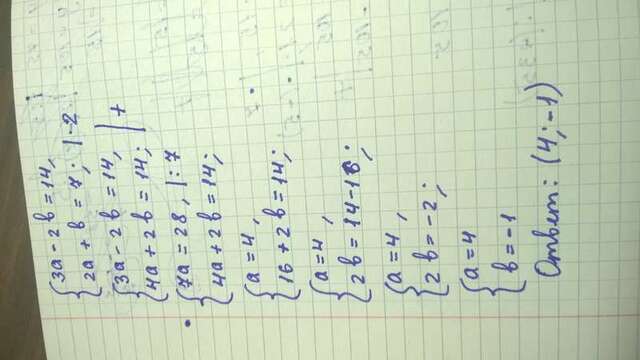 {3a - 2b = 14,
{2a + b = 7; | · 2
{3a - 2b = 14,
{4a + 2b = 14; | +
{7a = 28, | : 7
{4a + 2b = 14;
{a = 4,
{16 + 2b = 14;
{a = 4,
{2b = 14 - 16;
{a = 4,
{2b = -2;
{a = 4
{b = -1
Ответ: (4; -1)